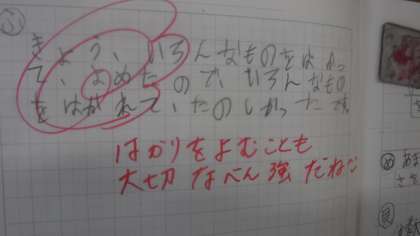 ふ
きょう、いろんなものをはかっ
て、よめたので、いろんなもの
をはかれて、たのしかったです
はかりをよむことも
大切なべん強だね
め
あま